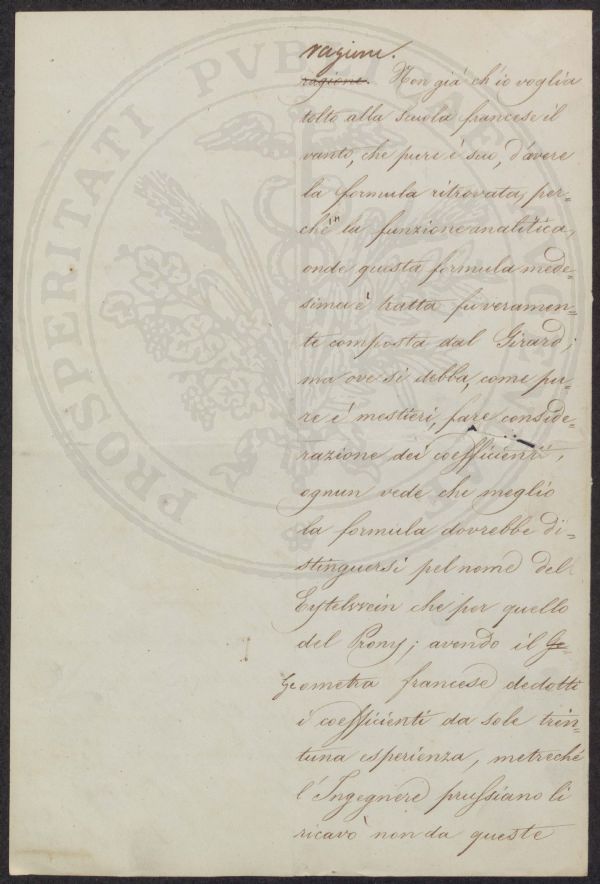 ragioni.
ragione. Non già ch'io voglia
tolto alla scuola francese il
vanto, che pure è suo, d'avere
la formula ritrovata, per-
chè in la funzione analitica,
onde questa formula mede-
sima è tratta fu veramen-
te composta dal Girard;
ma ove si debba, come pu-
re è mestieri, fare conside-
razione dei coefficienti,
ognun vede che meglio
la formula dovrebbe di-
stinguersi pel nome del
Eytelwein che per quello
del Prony; avendo il Ge-
Geometra francese dedotti
i coefficienti da sole tren-
tuna esperienza, metreché
l'Ingegnere prussiano li
ricavò non da queste
PROSPERITATI PVBLICAE